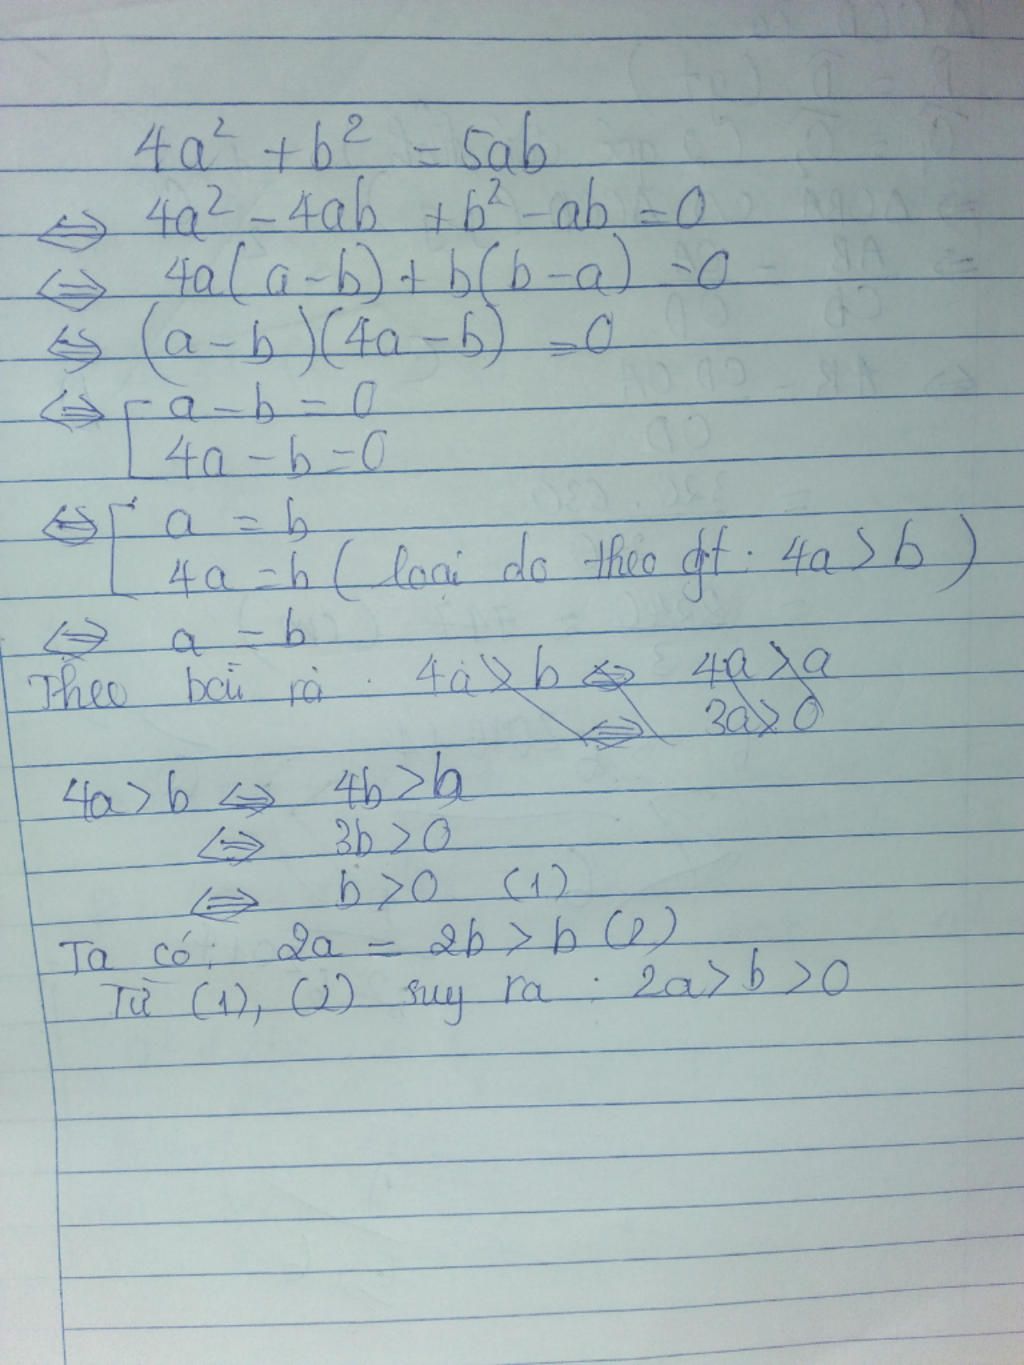 4a² + b² = 5ab
⇔ 4a² - 4ab + b² - ab = 0
⇔ 4a(a-b) + b(b-a) = 0
⇔ (a-b)(4a-b) = 0
⇔ [ a-b = 0
4a-b = 0
⇔ [ a = b
4a = b ( loại do theo gt : 4a > b )
⇔ a = b
Theo bài ra : 4a > b ⇔ 4a > a
⇔ 3a > 0
4a > b ⇔ 4b > b
⇔ 3b > 0
⇔ b > 0 (1)
Ta có: 2a = 2b > b (2)
Từ (1), (2) suy ra : 2a > b > 0